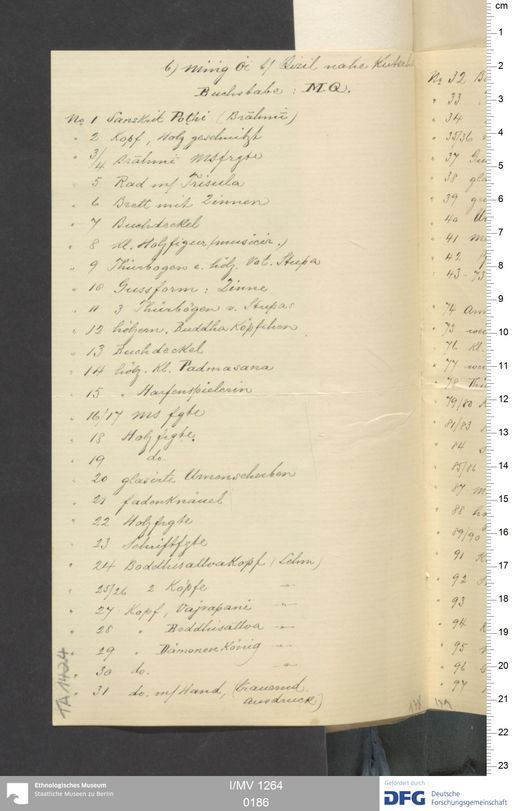 6) Ming Öi b/ Qizil nahe Kutscha
Buchstabe : M.Q.
No 1 Sanskrit Pothi (Brāhmī)
" 2 Kopf, Holz geschnitzt
" 3/4 Brāhmī Msfrgte
" 5 Rad m/ Trisula
" 6 Brett mit Zinnen
" 7 Buchdeckel
" 8 kl. Holzfigur (musicir.)
" 9 Thürbogen e. hölz. Vot. Stupa
" 10 Gussform : Zinne
" 11 3 Thürbögen v. Stupas
" 12 hölzern. Buddha Köpfchen
" 13 Buchdeckel
" 14 hölz. Kl. Padmasana
" 15 " Harfenspielerin
" 16/17 Ms fgte
" 18 Holzfrgte.
" 19 do.
" 20 glasirte Urnenscherben
" 21 Fadenknäuel
" 22 Holzfrgte
" 23 Schriftfgte
" 24 Boddhisattvakopf (Lehm)
" 25/26 2 Köpfe "
" 27 Kopf, Vajrapani "
" 28 " Boddhisattva "
" 29 " Dämonenkönig "
" 30 do. "
" 31 do. m/ Hand, (trauernd. Ausdruck)
TA 1424
No 32
" 33
" 34
" 35/36
" 37
" 38
" 39
" 40
" 41
" 42
" 43-73
" 74
" 75
" 76 kl.
" 77
" 78
" 79/80
" 81/83
" 84
" 85/86
" 87
" 88
" 89/90
" 91
" 92
" 93
" 94
" 95
" 96
" 97
cm
1
2
3
4
5
6
7
8
9
10
11
12
13
14
15
16
17
18
19
20
21
22
23
Ethnologisches Museum
Staatliche Museen zu Berlin
I/MV 1264
0186
Gefördert durch
DFG Deutsche
Forschungsgemeinschaft